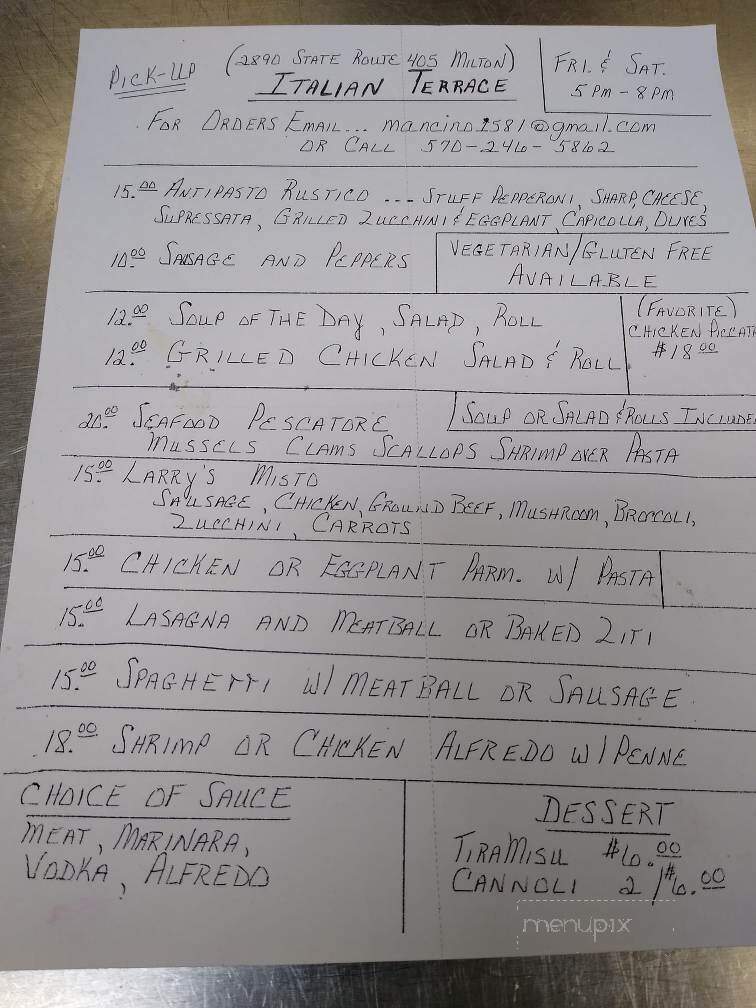 PICK-UP
(2890 STATE ROUTE 405 MILTON)
ITALIAN TERRACE
FRI. & SAT.
5 PM - 8 PM
FOR ORDERS EMAIL... mancino1581@gmail.com
OR CALL 570-246-5862
15.00 ANTIPASTO RUSTICO --- STUFF PEPPERONI, SHARP CHEESE,
SUPRESSATA, GRILLED ZUCCHINI & EGGPLANT, CAPICOLLA, OLIVES
10.00 SAUSAGE AND PEPPERS
VEGETARIAN/GLUTEN FREE
AVAILABLE
12.00 SOUP OF THE DAY, SALAD, ROLL
12.00 GRILLED CHICKEN SALAD & ROLL
(FAVORITE)
CHICKEN PICCATA
$18.00
20.00 SEAFOOD PESCATORE
SOUP OR SALAD & ROLLS INCLUDE
MUSSELS CLAMS SCALLOPS SHRIMP OVER PASTA
15.00 LARRY'S MISTO
SAUSAGE, CHICKEN, GROUND BEEF, MUSHROOM, BROCCOLI,
ZUCCHINI, CARROTS
15.00 CHICKEN OR EGGPLANT PARM. W/ PASTA
15.00 LASAGNA AND MEATBALL OR BAKED ZITI
15.00 SPAGHETTI W/ MEATBALL OR SAUSAGE
18.00 SHRIMP OR CHICKEN ALFREDO W/ PENNE
CHOICE OF SAUCE
MEAT, MARINARA,
VODKA, ALFREDO
DESSERT
TIRAMISU $6.00
CANNOLI 2/$6.00
menupix